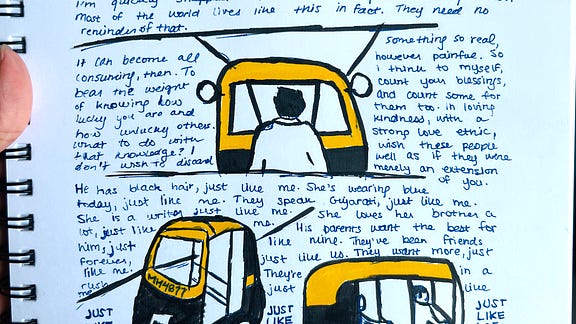 I'm quickly
most of the world lives like this in fact. They need no
reminder of that.
It can become all
consuming, then. To
bear the weight
of knowing how
lucky you are and
how unlucky others.
What to do with
that knowledge? I
don't wish to discard
something so real,
however painful. So
I think to myself,
count your blessings,
and count some for
them too. in loving
kindness, with a
strong love ethic,
wish these people
well as if they were
merely an extension
of you.
He has black hair, just like me. She's wearing blue
today, just like me. They speak Gujarati, just like me.
She is a writer just like me. She loves her brother a
lot, just like me. His parents want the best for
him, just like mine. They've been friends
forever, just like us. They want more, just
like me. They're in a
rush just like
me
MH4877
JUST
LIKE
JUST
LIKE
JUST
LIKE